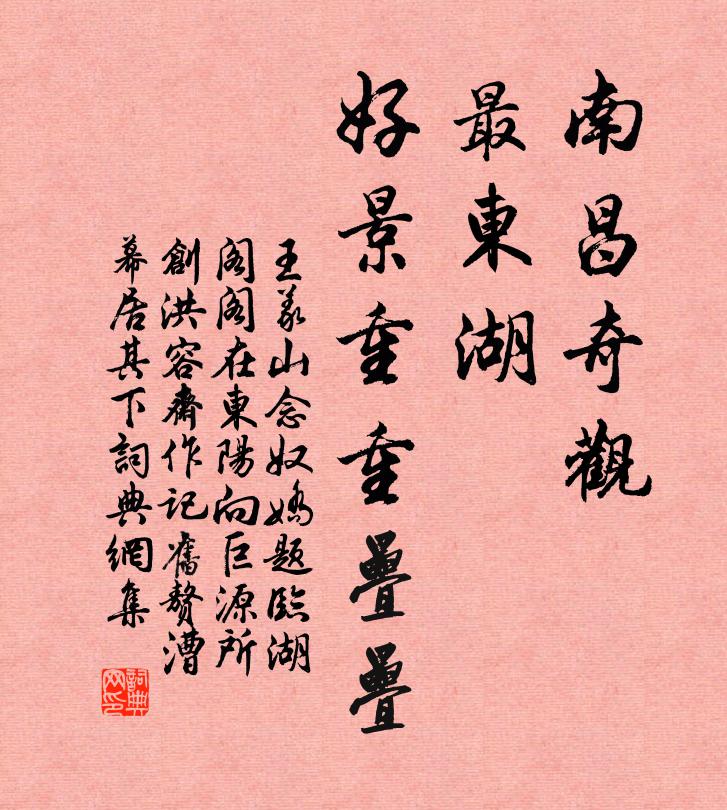 南昌奇觀
最東湖
好景重重疊疊
王義山念奴嬌題臨湖
閣閣在東陽向巨源所
創洪容齋作記舊贅漕
幕居其下詞典網集
詞典網印